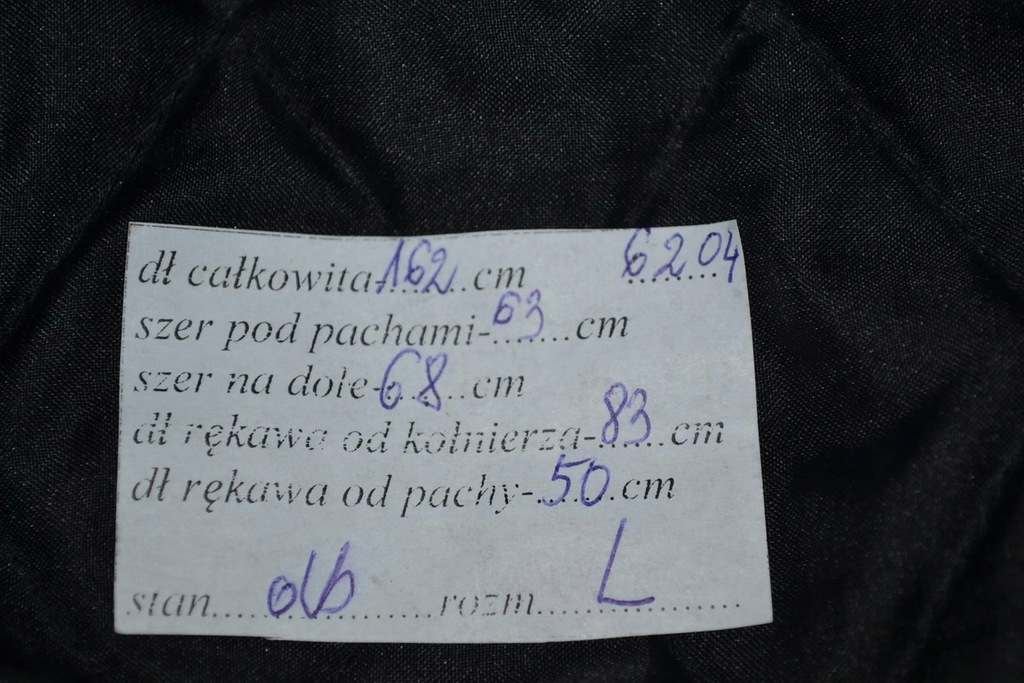 dł całkowita-162...cm 6204
szer pod pachami-63...cm
szer na dole-68...cm
dł rękawa od kołnierza-83...cm
dł rękawa od pachy-50.cm
stan....db.......rozm.....L.........